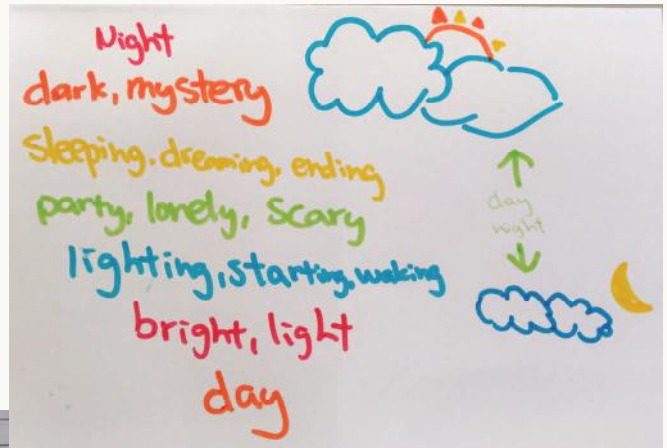 Night
dark, mystery
sleeping, dreaming, ending
party, lonely, scary
lighting, starting, waking
bright, light
day
day
night